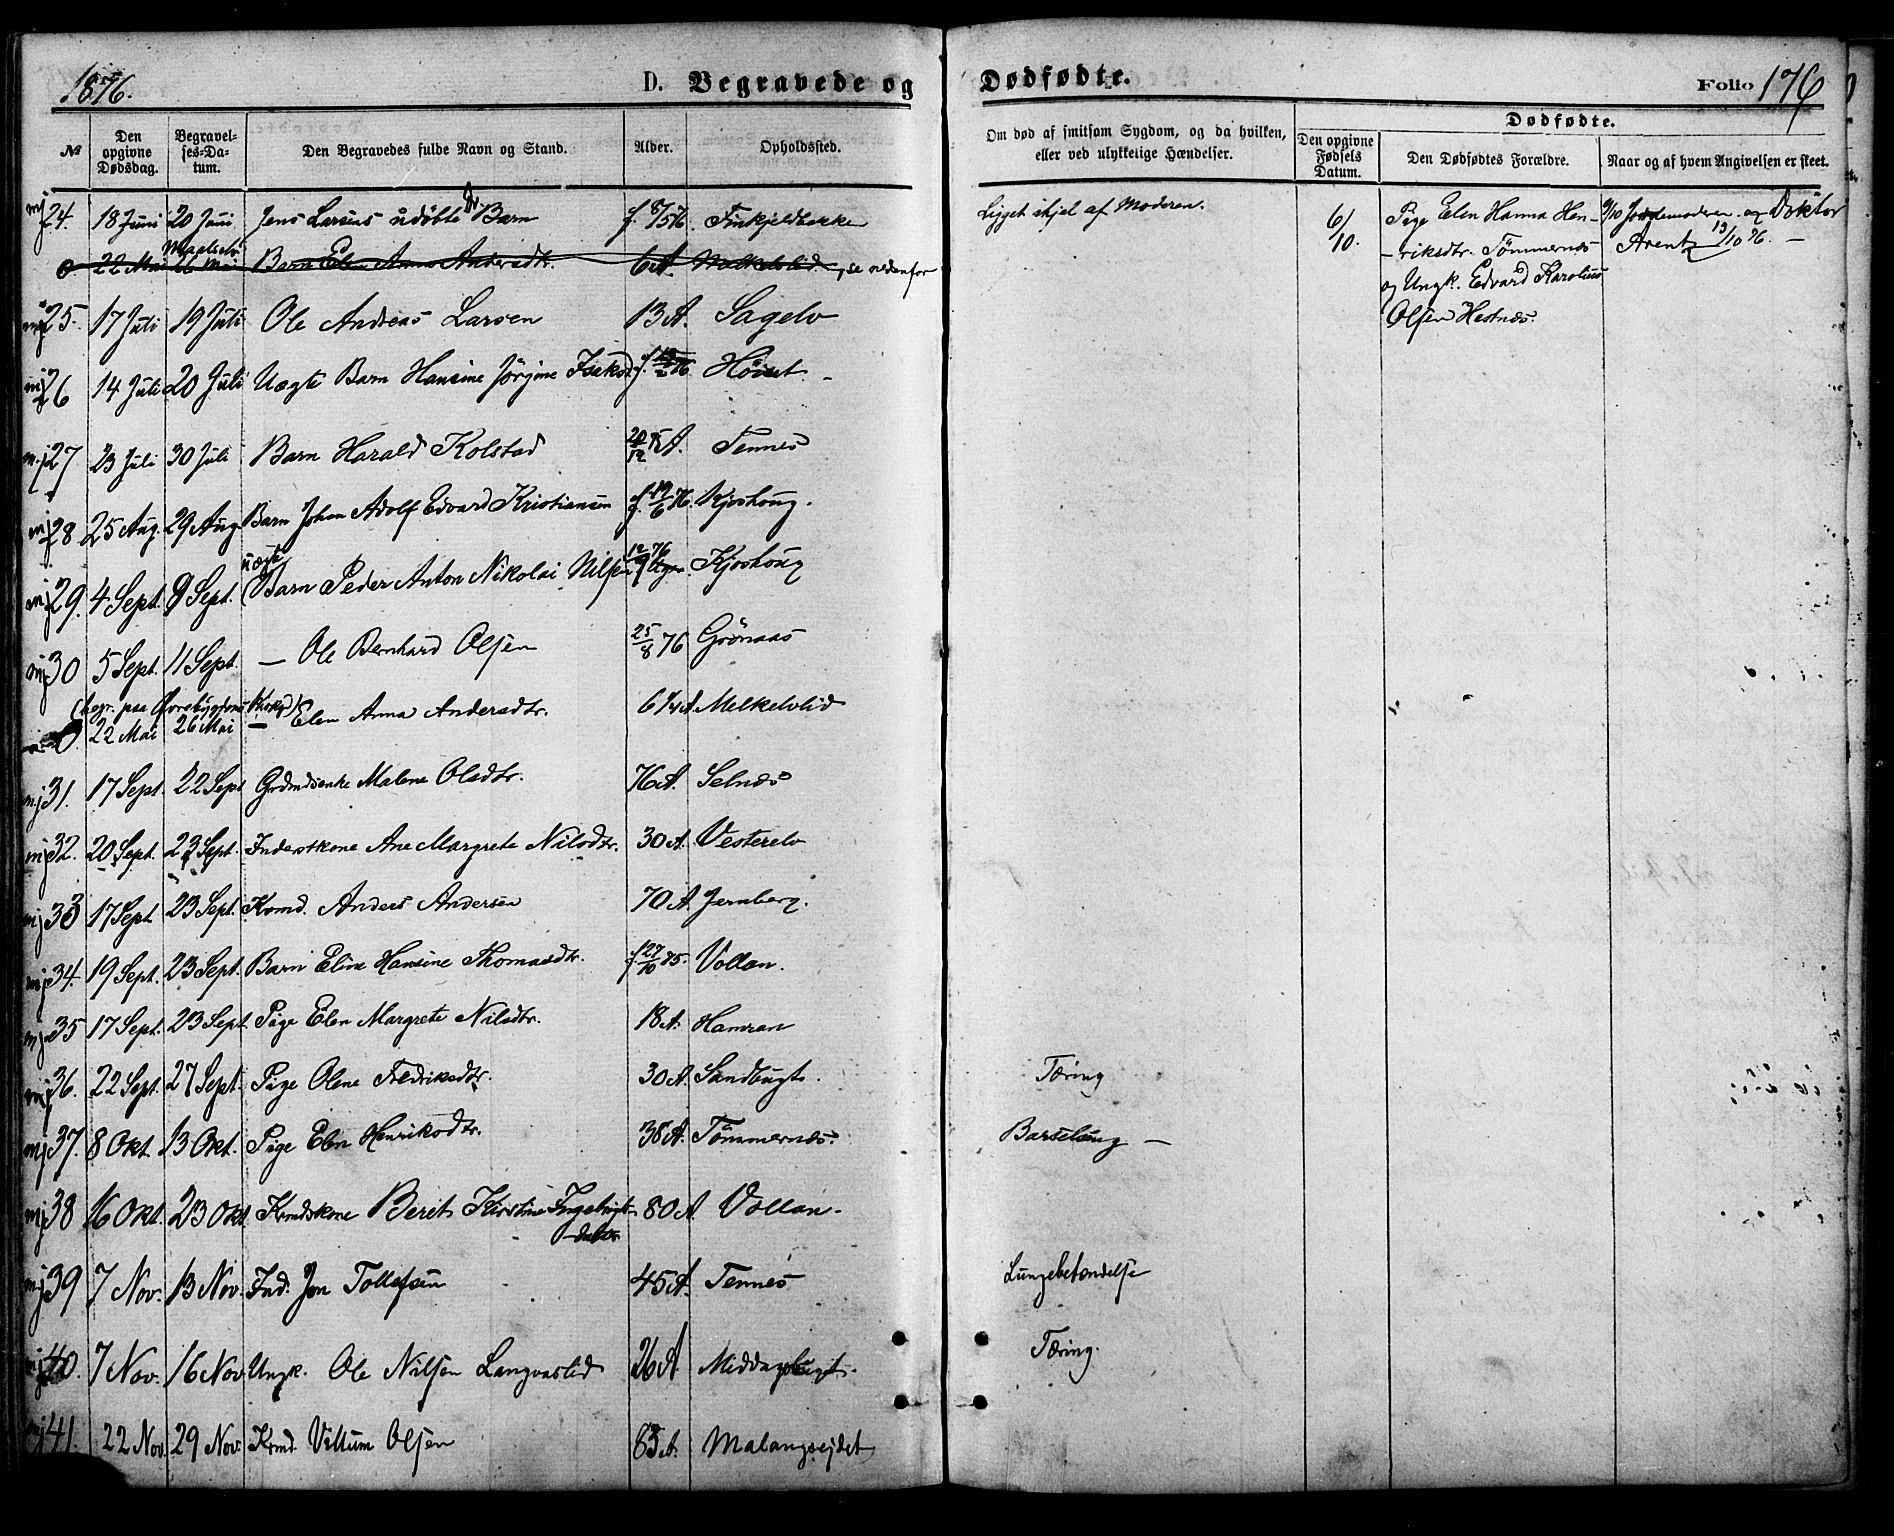 1876.
D. Begravede og Dødfødte.
Folio 176
№
Den opgivne Dødsdag.
Begravelses-Datum.
Den Begravedes fulde Navn og Stand.
Alder.
Opholdssted.
Om død af smitsom Sygdom, og da hvilken, eller ved ulykkelige Hændelser.
Dødfødte.
Den opgivne Fødsels Datum.
Den Dødfødtes Forældre.
Naar og af hvem Angivelsen er skeet.
24. 18 Juni 20 Juni Jens Larsens udøbte Barn f. 8/5 76 Finkjeldbakke Ligget ihjel af Moderen.
0 22 Mai 26 Mai Barn Elen Anna Andersdtr. 6 A. Melkelvlid, se nedenfor
25. 17 Juli 19 Juli Ole Andreas Larsen 13 A. Sagelv
26 14 Juli 20 Juli Uægte Barn Hansine Jørgine Isaksd. Høiset
27 23 Juli 30 Juli Barn Harald Kolstad Tennes
28 25 Aug. 29 Aug. Barn Johan Adolf Edvard Kristiansen f. 19/6 76. Kjoshoug.
uægte
29. 4 Sept. 9 Sept. Barn Peder Anton Nikolai Nilsen Kjoshoug
30 5 Sept. 11 Sept. — Ole Bernhard Olsen 25/8 76 Grønaas
(begr. paa Øvrebygdens Kirkegd)
0. 22 Mai 26 Mai — Elen Anna Andersdtr. Melkelvlid
31. 17 Sept. 22 Sept Grdmdsenke Malene Olsdtr. 76 A. Selnæs
32. 20 Sept. 23 Sept. Inderstkone Ane Margrete Nilsdtr. 30 A. Vesterelv
33 17 Sept 23 Sept. Krmd. Anders Andersen 70 A. Jernberg.
34. 19 Sept. 23 Sept. Barn Eline Hansine Thomasdtr. f. 27/10 75. Vollan.
35 17 Sept. 23 Sept. Pige Elen Margrete Nilsdtr. 18 A. Hamran
36. 22 Sept. 27 Sept. Pige Olene Fredriksdtr. 30 A. Sandbugt. Tæring
37. 8 Okt. 13 Okt. Pige Elen Henriksdtr. 38 A. Tømmernæs. Barselseng —
38 16 Okt. 23 Okt. Krmdskone Beret Kirstine Ingebrigt- 80 A. Vollan.
-datter
39 7 Nov. 13 Nov. Ind. Jon Tollefsen 45 A. Tennes Lungebetændelse
40. 7 Nov. 16 Nov. Ungk. Ole Nilsen Langvaslid 26 A Middagsbugt. Tæring.
41. 22 Nov. 29 Nov. Krmd. Villum Olsen 83 A. Malangseidet
6/10. Pige Elen Hanna Hen-
-riksdtr. Tømmernæs
og Ungk. Edvard Karolius
Olsen Hestnæs.
9/10 Jordemoderen og Doktor
Arentz 13/10 76. —